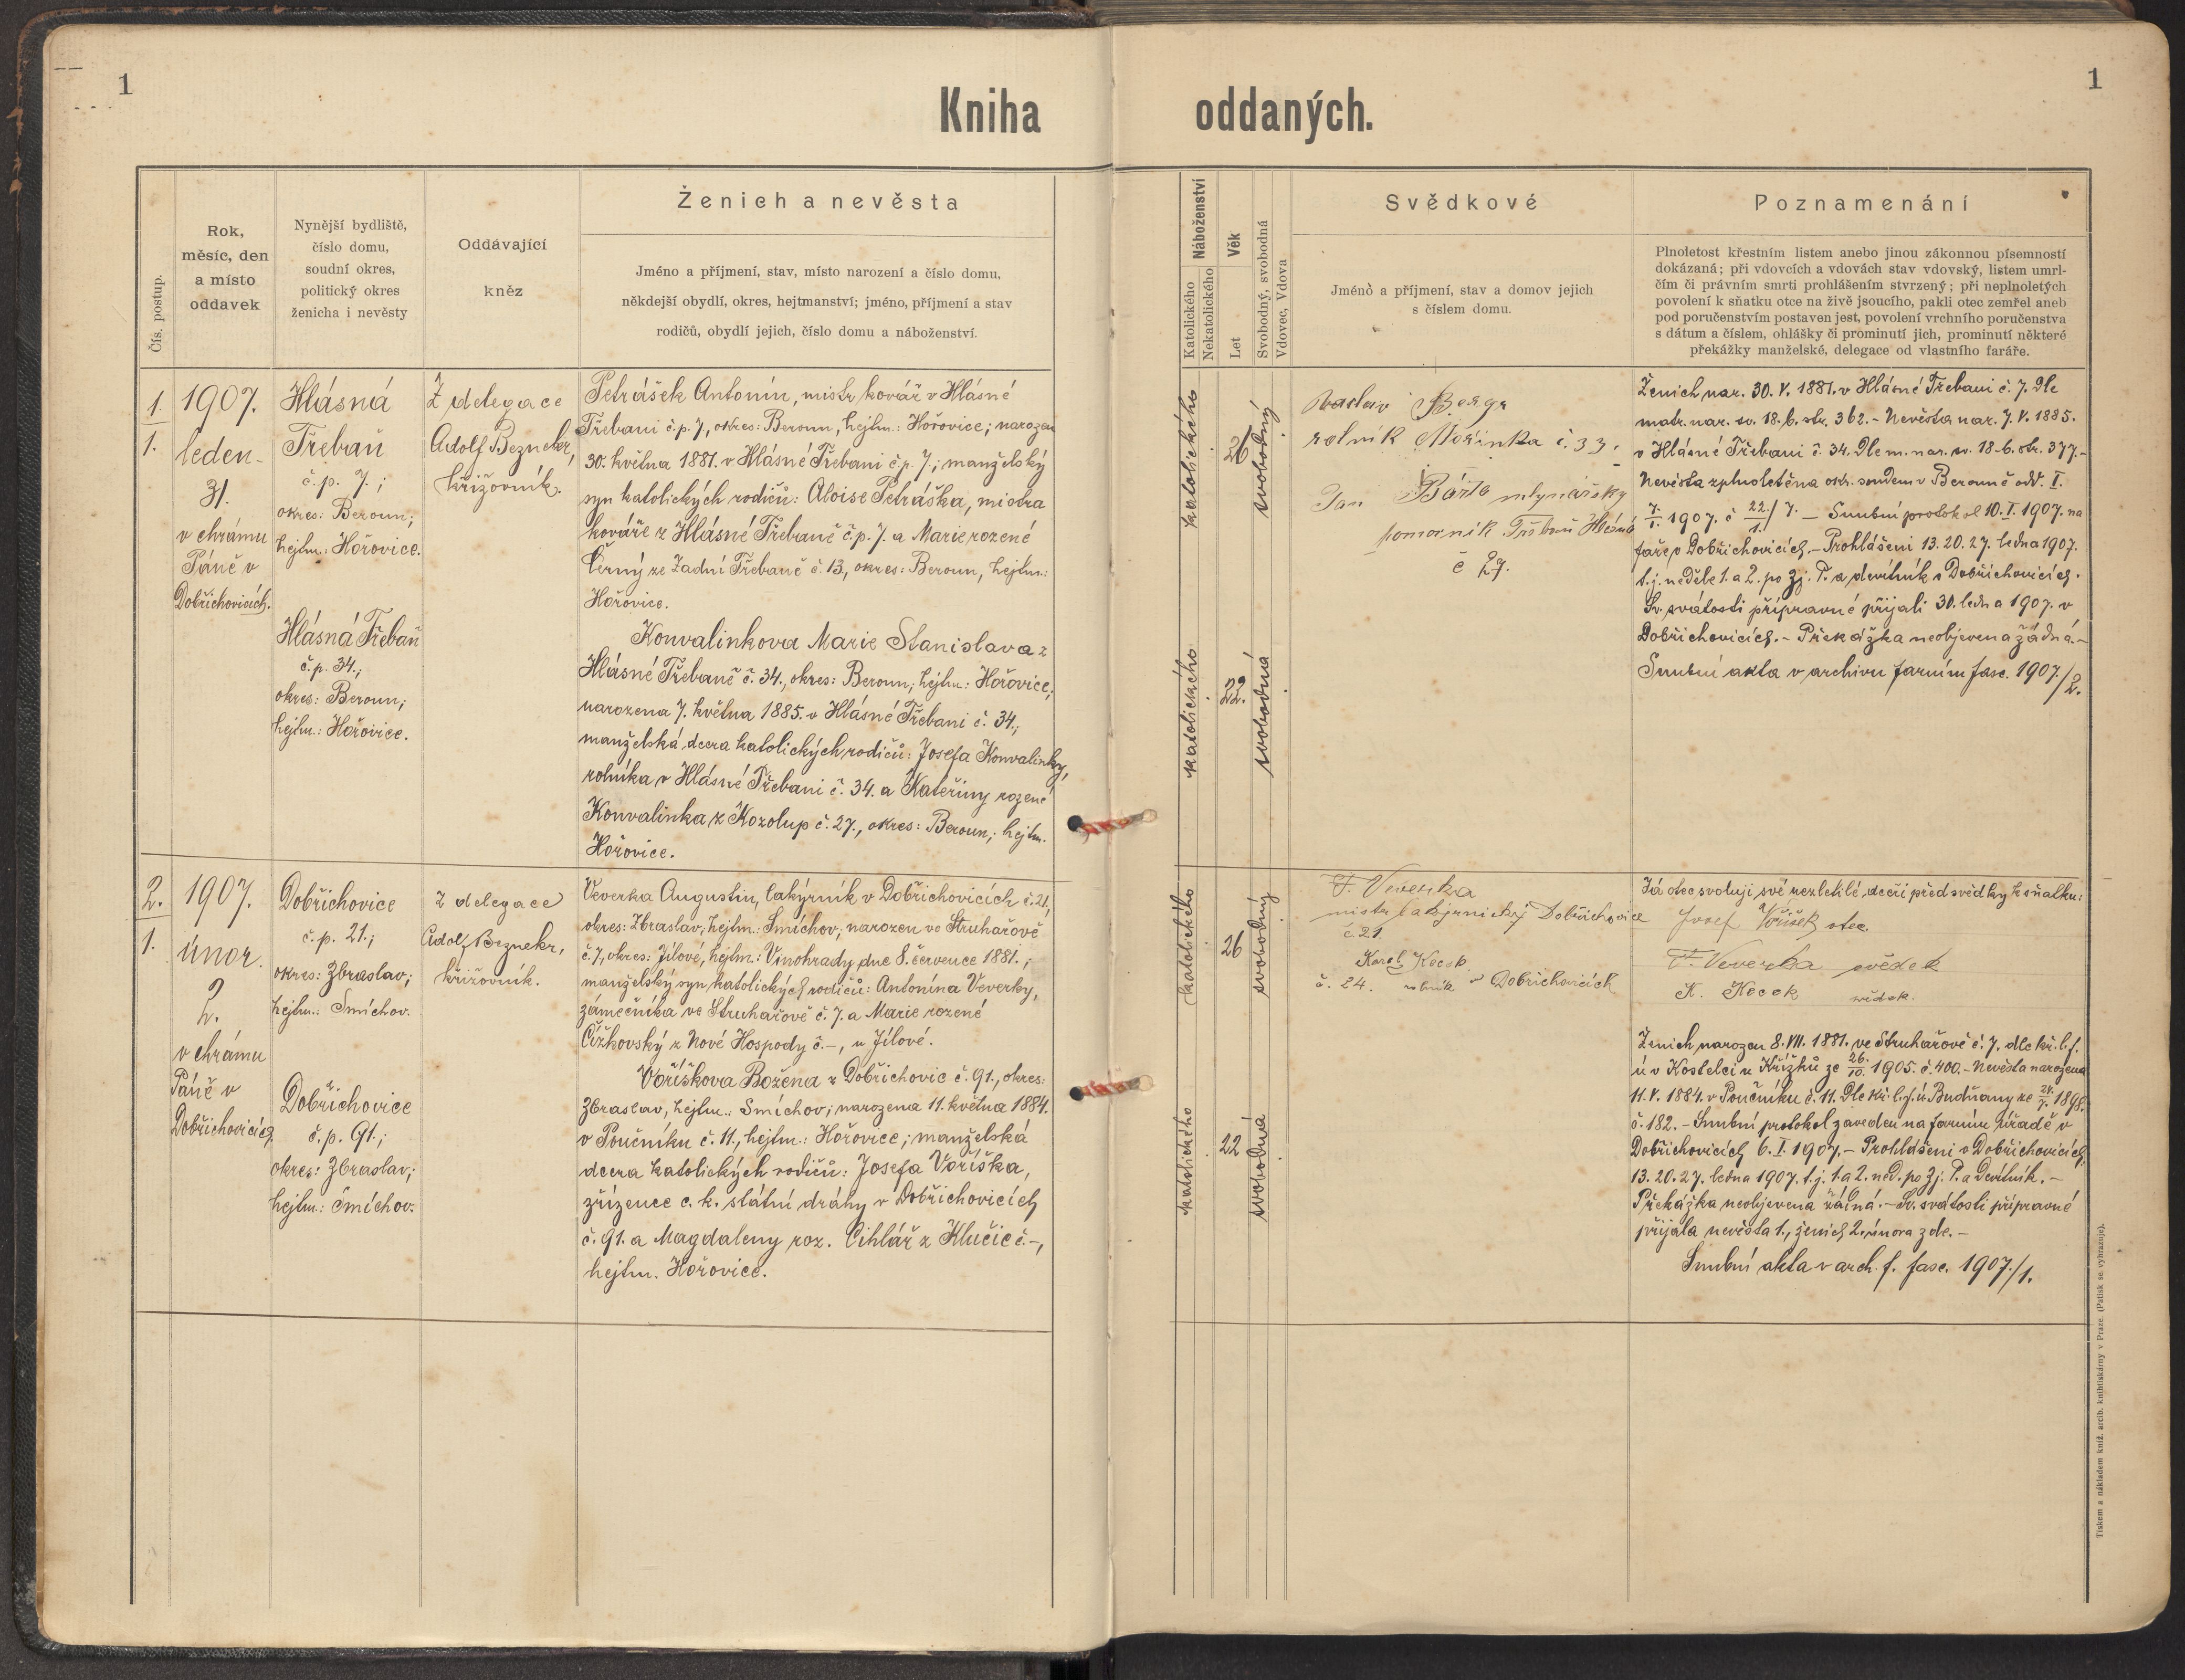 1
Kniha
Čís. postup.
Rok,
měsíc, den
a místo
oddavek
Nynější bydliště,
číslo domu,
soudní okres,
politický okres
ženicha i nevěsty
Oddávající
kněz
Ženich a nevěsta
Jméno a příjmení, stav, místo narození a číslo domu,
někdejší obydlí, okres, hejtmanství; jméno, příjmení a stav
rodičů, obydlí jejich, číslo domu a náboženství.
1.
1.
1907.
leden
31.
v chrámu
Páně v
Dobřichovicích.
Hlásná
Třebaň
č.p. 7.;
okres: Beroun;
hejtm.: Hořovice.
Hlásná Třebaň
č.p. 34.;
okres: Beroun;
hejtm.: Hořovice.
Z delegace
Adolf Beznekr,
křižovník.
Petrášek Antonín, mistr kovář v Hlásné
Třebani č.p. 7, okres: Beroun, hejtm.: Hořovice; narozen
30. května 1881. v Hlásné Třebani č.p. 7.; manželský
syn katolických rodičů: Aloise Petráška, mistra
kováře z Hlásné Třebaně č.p. 7. a Marie rozené
Černý ze Zadní Třebaně č. 13, okres: Beroun, hejtm.:
Hořovice.
Konvalinkova Marie Stanislava z
Hlásné Třebaně č. 34., okres: Beroun; hejtm.: Hořovice;
narozena 7. května 1885. v Hlásné Třebani č. 34.;
manželská dcera katolických rodičů: Josefa Konvalinky,
rolníka v Hlásné Třebani č. 34. a Kateřiny rozené
Konvalinka z Kozolup č. 27., okres: Beroun; hejtm.
Hořovice.
2.
1.
1907.
únor.
2.
v chrámu
Páně v
Dobřichovicích
Dobřichovice
č.p. 21.;
okres: Zbraslav;
hejtm.: Smíchov.
Dobřichovice
č.p. 91.;
okres: Zbraslav;
hejtm.: Smíchov.
Z delegace
Adolf Beznekr,
křižovník.
Veverka Augustin, lakýrník v Dobřichovicích č. 21,
okres: Zbraslav, hejtm.: Smíchov; narozen ve Struhařově
č. 7, okres: Jílové, hejtm.: Vinohrady dne 8. července 1881.;
manželský syn katolických rodičů: Antonína Veverky,
zámečníka ve Struhařově č. 7. a Marie rozené
Čížkovský z Nové Hospody č. -, u Jílové.
Voříškova Božena z Dobřichovic č. 91., okres:
Zbraslav, hejtm.: Smíchov; narozena 11. května 1884.
v Poučníku č. 11., hejtm.: Hořovice; manželská
dcera katolických rodičů: Josefa Voříška,
zřízence c. k. státní dráhy v Dobřichovicích
č. 91. a Magdaleny roz. Cihlář z Klučic č. -,
hejtm. Hořovice.
1
oddaných.
Náboženství
Katolického
Nekatolického
Věk
Let
Svobodný, svobodná
Vdovec, Vdova
Svědkové
Jméno a příjmení, stav a domov jejich
s číslem domu.
Poznamenání
Plnoletost křestním listem anebo jinou zákonnou písemností
dokázaná; při vdovcích a vdovách stav vdovský, listem umrl-
čím či právním smrti prohlášením stvrzený; při neplnoletých
povolení k sňatku otce na živě jsoucího, pakli otec zemřel aneb
pod poručenstvím postaven jest, povolení vrchního poručenstva
s dátum a číslem, ohlášky či prominutí jich, prominutí některé
překážky manželské, delegace od vlastního faráře.
katolického
26
svobodný
katolického
22.
svobodná
Václav Bergr
rolník Mořinka č. 33.
Jan Bárta mlynářský
pomocník Třebaň Hlásná
č 27.
Ženich nar. 30. V. 1881. v Hlásné Třebani č. 7. Dle
matr. nar. sv. 18. b. str. 362. - Nevěsta nar. 7. V. 1885.
v Hlásné Třebani č. 34. Dle m. nar. sv. 18. b. str. 377. -
Nevěsta zplnoletěna okr. soudem v Berouně odd. I.
7./1. 1907. č 22/1./7. - Snubní protokol 10. I. 1907. na
faře v Dobřichovicích. - Prohlášení 13. 20. 27. ledna 1907.
t. j. neděle 1. a 2. po Zj. P. a devítník v Dobřichovicích.
Sv. svátosti přípravné přijali 30. ledna 1907. v
Dobřichovicích. - Překážka neobjevena žádná. -
Snubní akta v archivu farním fasc. 1907./2.
katolického
26
svobodný
katolického
22
svobodná
F. Veverka
mistr lakýrnický Dobřichovice
č. 21.
Karel Kocek
č. 24. rolník v Dobřichovicích
Já otec svoluji, své nezletilé dceři před svědky k sňatku:
Josef Voříšek otec.
F. Veverka svědek
K. Kocek svědek.
Ženich narozen 8. VII. 1881. ve Struhařově č. 7. dle kř. l. f.
ú v Kostelci u Křížků ze 26./10. 1905. č. 400. - Nevěsta narozena
11. V. 1884. v Poučníku č. 11. Dle kř. l. f. ú. Budňany ze
č. 182. - Snubní protokol zaveden na farním úřadě v
Dobřichovicích 6. I. 1907. - Prohlášení v Dobřichovicích
13. 20. 27. ledna 1907. t. j. 1. a 2. ned. po Zj. P. a Devítník. -
Překážka neobjevena žádná. - Sv. svátosti přípravné
přijala nevěsta 1., ženich 2. února zde. -
Snubní akta v arch. f. fasc. 1907./1.
Tiskem a nákladem kníž. arcib. knihtiskárny v Praze. (Patisk se vyhrazuje).